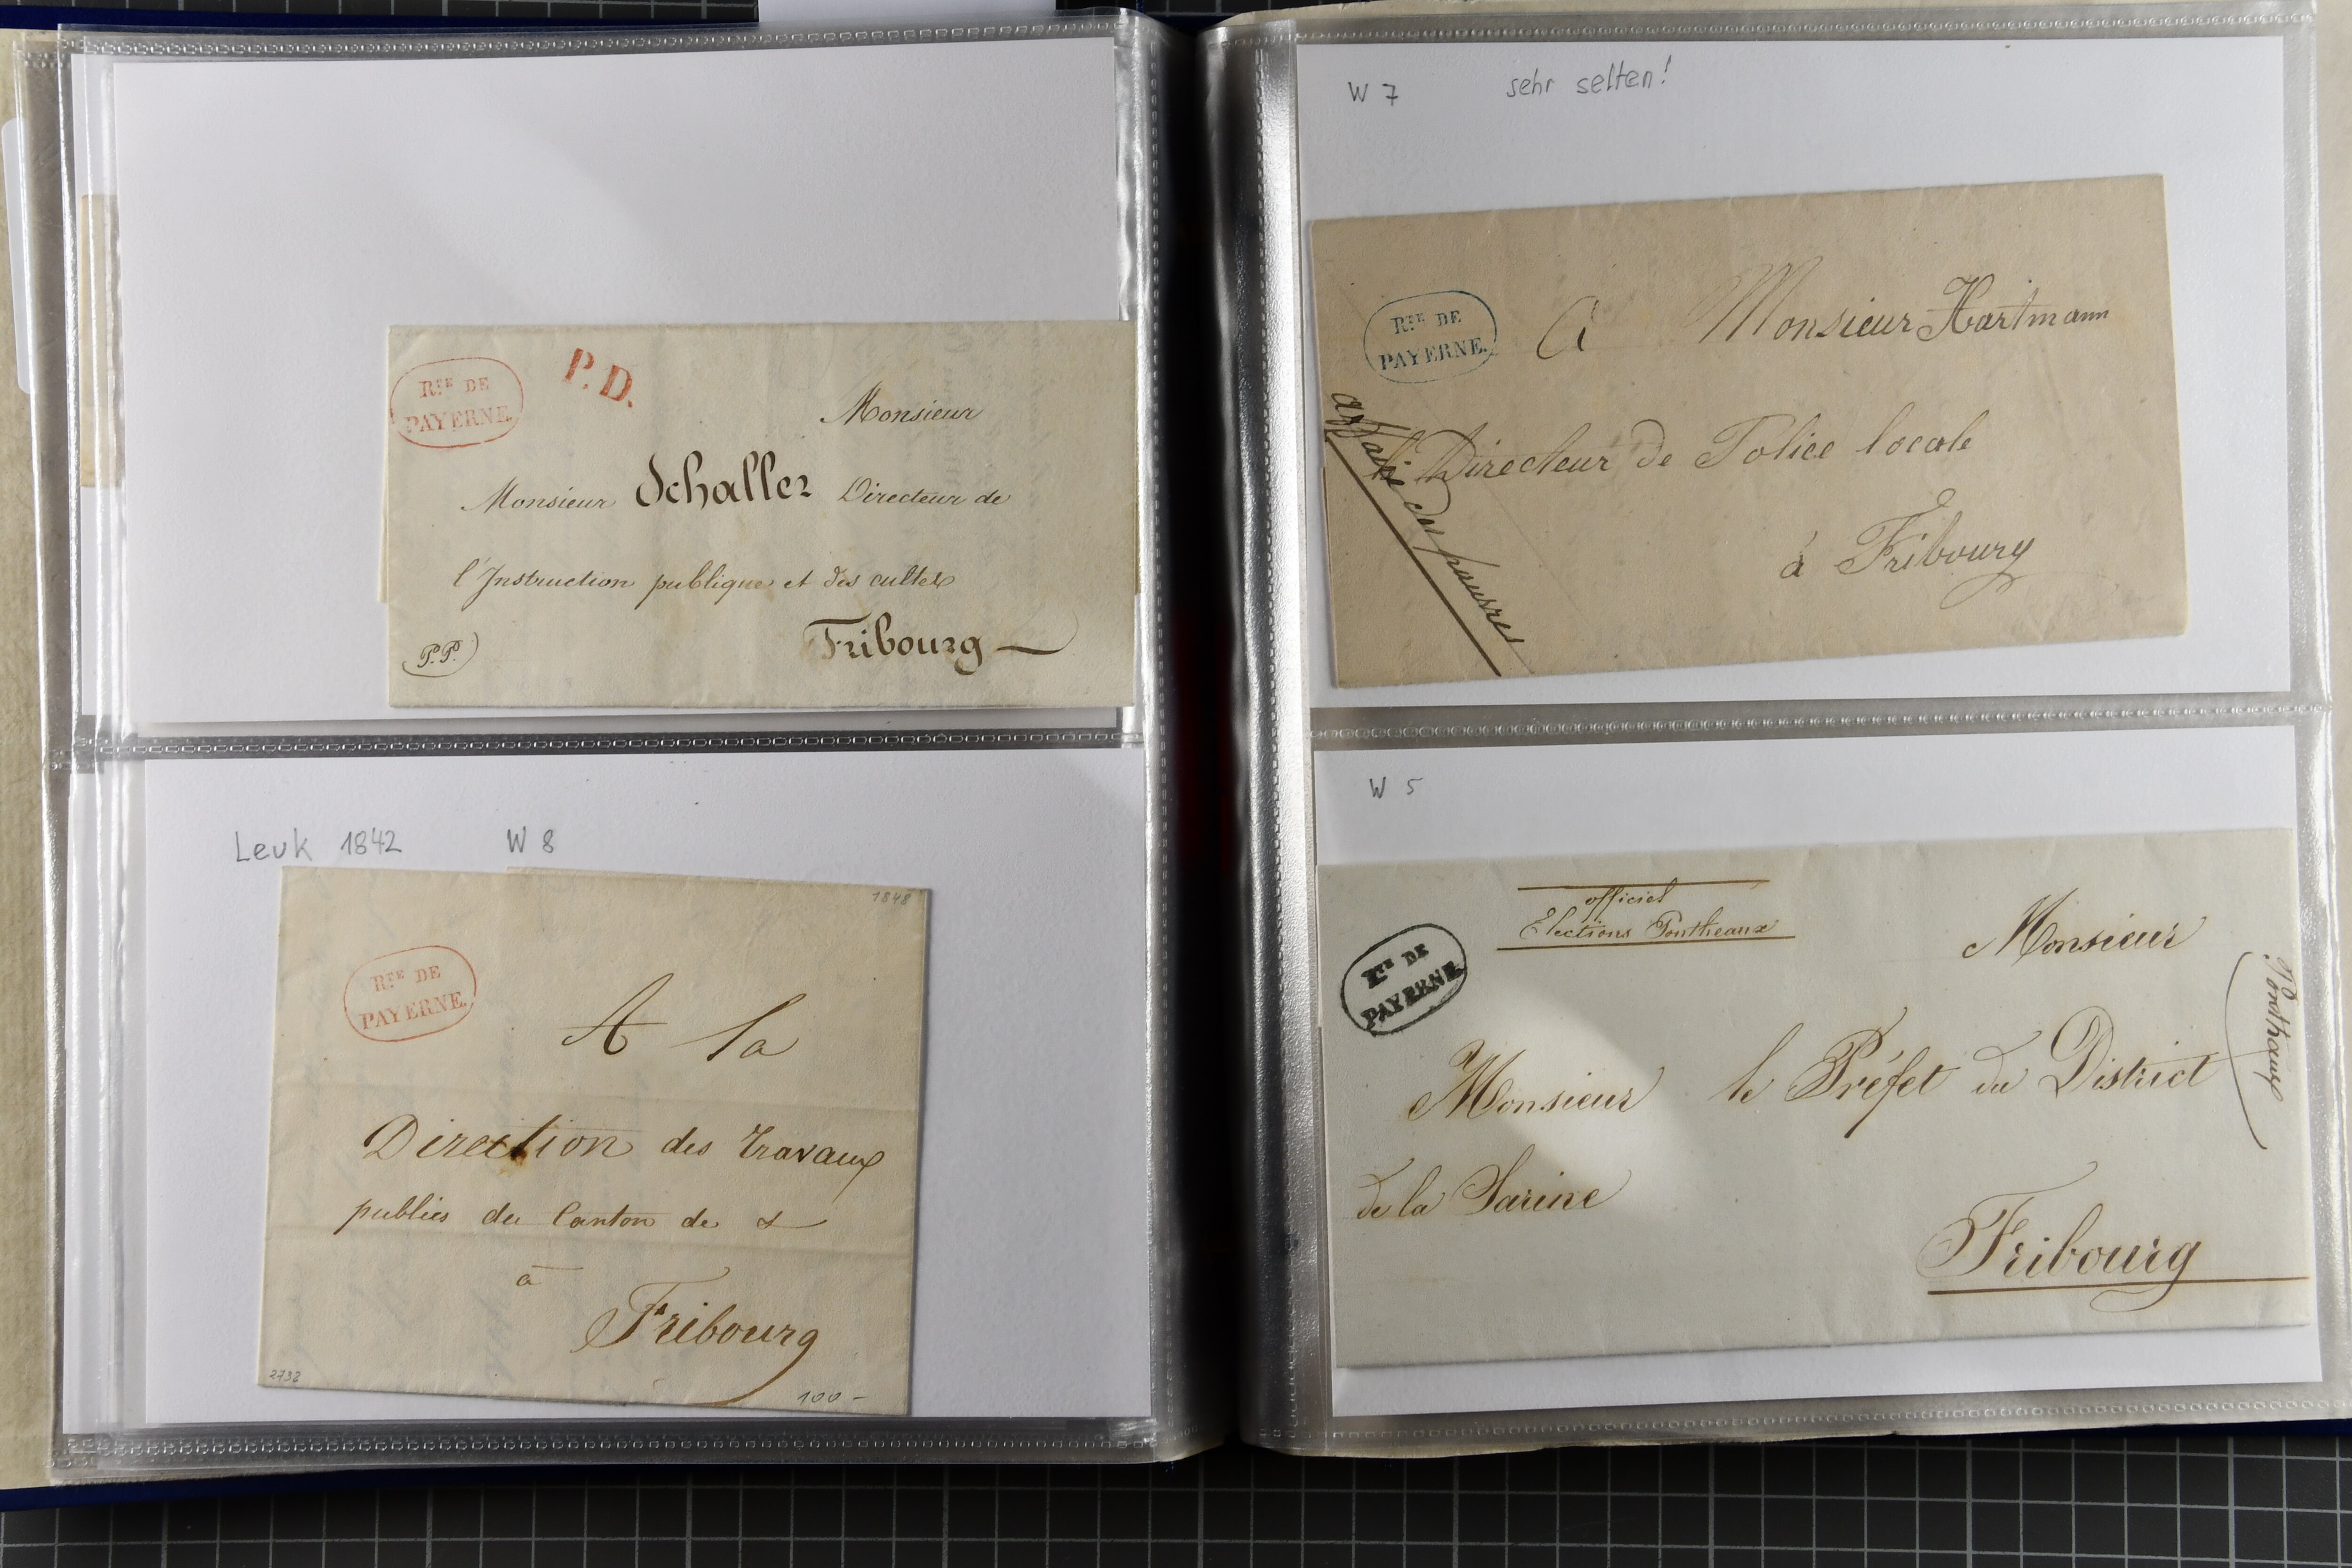 RTE DE
PAYERNE.
P.D.
Monsieur
Monsieur Schaller Directeur de
l'Instruction publique et des cultes
Fribourg
P.P.
Leuk 1842 W 8
1848
RTE DE
PAYERNE.
A la
Direction des Travaux
publics du Canton de
à
Fribourg
2732
100 -
W 7 sehr selten!
RTE DE
PAYERNE.
A Monsieur Hartmann
Directeur de Police locale
à Fribourg
affaire des pauvres
W 5
officiel
Elections Pontheaux
RTE DE
PAYERNE.
Monsieur
Monsieur le Préfet du District
de la Sarine
Fribourg
Ponthaux